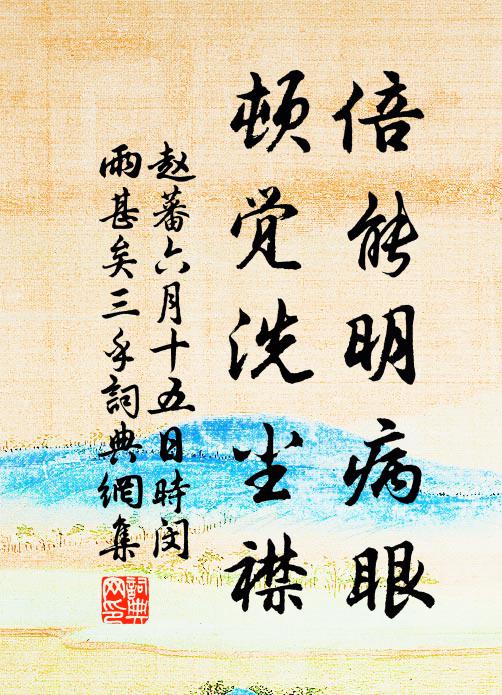 倍能明病眼
顿觉洗尘襟
赵蕃六月十五日時闵
雨甚矣三詞典網集
詞典
网印